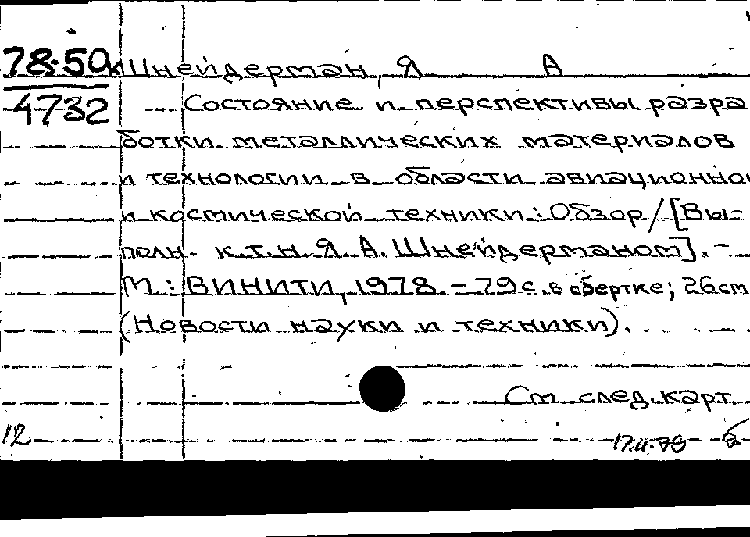 78-50к Шнейдерман, Я А
4732 Состояние и перспективы разра
ботки металлических материалов
и технологии в области авиационно
и космической техники: Обзор/[Вы-
полн. к.т.н Я.А. Шнейдерманом]. -
М.: ВИНИТИ, 1978. - 79с. в обертке; 26см
(Новости науки и техники).
См след. карт
12